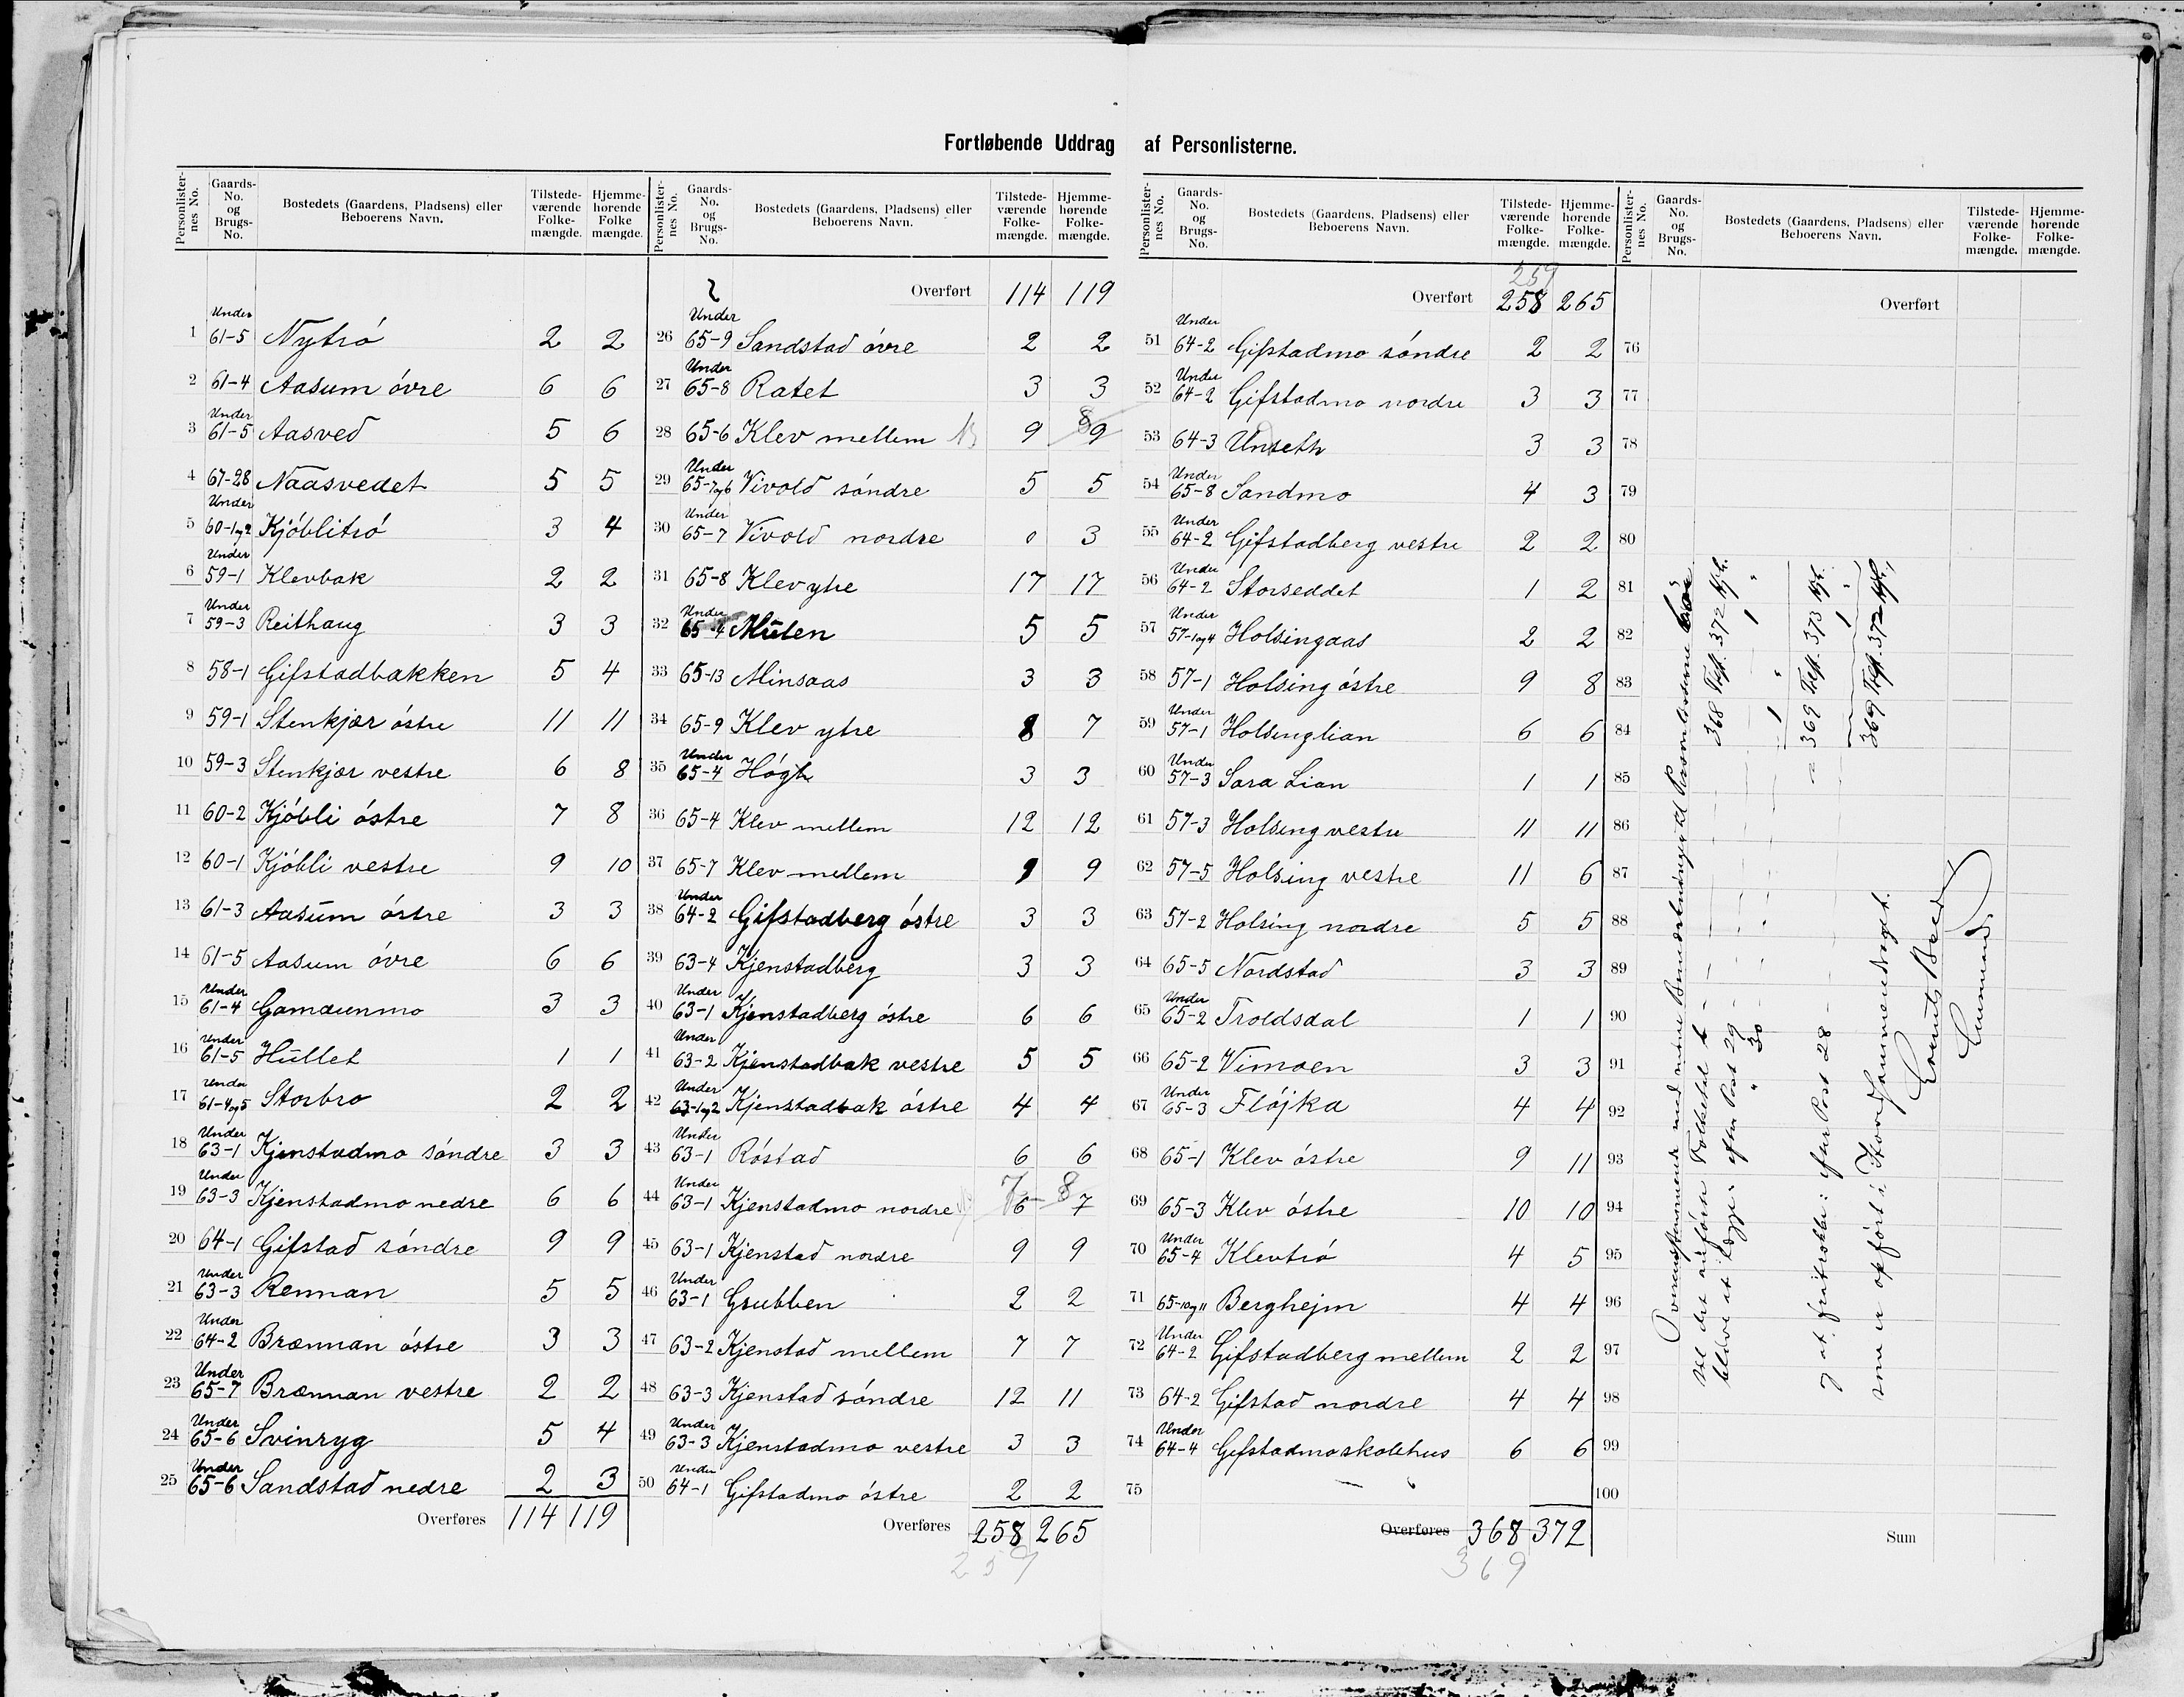 Fortløbende Uddrag af Personlisterne.
Personlisternes No. Gaards-No. og Brugs-No. Bostedets (Gaardens, Pladsens) eller Beboerens Navn. Tilstedeværende Folkemængde. Hjemmehørende Folkemængde.
1 Under 61-5 Nytrö 2 2
2 61-4 Aasum övre 6 6
3 Under 61-5 Aasved 5 6
4 67-28 Naasvedet 5 5
5 Under 60-1og2 Kjöblitrö 3 4
6 Under 59-1 Klevbak 2 2
7 Under 59-3 Reithaug 3 3
8 58-1 Gifstadbakken 5 4
9 59-1 Stenkjær östre 11 11
10 59-3 Stenkjær vestre 6 8
11 60-2 Kjöbli östre 7 8
12 60-1 Kjöbli vestre 9 10
13 61-3 Aasum östre 3 3
14 61-5 Aasum övre 6 6
15 Under 61-4 Gamaunmo 3 3
16 Under 61-5 Hullet 1 1
17 Under 61-4og5 Storbro 2 2
18 Under 63-1 Kjenstadmo söndre 3 3
19 Under 63-3 Kjenstadmo nedre 6 6
20 64-1 Gifstad söndre 9 9
21 Under 63-3 Rennan 5 5
22 Under 64-2 Brænnan östre 3 3
23 Under 65-7 Brænnan vestre 2 2
24 Under 65-6 Svinryg 5 4
25 Under 65-6 Sandstad nedre 2 3
Overføres 114 119
Personlisternes No. Gaards-No. og Brugs-No. Bostedets (Gaardens, Pladsens) eller Beboerens Navn. Tilstedeværende Folkemængde. Hjemmehørende Folkemængde.
Overført 114 119
26 Under 65-9 Sandstad övre 2 2
27 Under 65-8 Ratet 3 3
28 65-6 Klev mellem 9 8 9
29 Under 65-7og6 Vivold söndre 5 5
30 Under 65-7 Vivold nordre 0 3
31 65-8 Klev ytre 17 17
32 Under 65-4 Mulen 5 5
33 65-13 Minsaas 3 3
34 65-9 Klev ytre 8 7
35 Under 65-4 Högh 3 3
36 65-4 Klev mellem 12 12
37 65-7 Klev mellem 9 9
38 Under 64-2 Gifstadberg östre 3 3
39 63-4 Kjenstadberg 3 3
40 Under 63-1 Kjenstadberg östre 6 6
41 Under 63-2 Kjenstadbak vestre 5 5
42 Under 63-1og2 Kjenstadbak östre 4 4
43 Under 63-1 Röstad 6 6
44 Under 63-1 Kjenstadmo nordre 7 6 8 7
45 63-1 Kjenstad nordre 9 9
46 Under 63-1 Grubben 2 2
47 63-2 Kjenstad mellem 7 7
48 63-3 Kjenstad söndre 12 11
49 Under 63-3 Kjenstadmo vestre 3 3
50 Under 64-1 Gifstadmo östre 2 2
Overføres 258 265
259
Personlisternes No. Gaards-No. og Brugs-No. Bostedets (Gaardens, Pladsens) eller Beboerens Navn. Tilstedeværende Folkemængde. Hjemmehørende Folkemængde.
259
Overført 258 265
51 Under 64-2 Gifstadmo söndre 2 2
52 Under 64-2 Gifstadmo nordre 3 3
53 64-3 Unseth 3 3
54 Under 65-8 Sandmo 4 3
55 Under 64-2 Gifstadberg vestre 2 2
56 Under 64-2 Storseddet 1 2
57 Under 57-1og4 Holsingaas 2 2
58 57-1 Holsing östre 9 8
59 Under 57-1 Holsinglian 6 6
60 Under 57-3 Sara Lian 1 1
61 57-3 Holsing vestre 11 11
62 57-5 Holsing vestre 11 6
63 57-2 Holsing nordre 5 5
64 65-5 Nordstad 3 3
65 Under 65-2 Troldsdal 1 1
66 65-2 Vimoen 3 3
67 Under 65-3 Flöjka 4 4
68 65-1 Klev östre 9 11
69 65-3 Klev östre 10 10
70 Under 65-4 Klevtrö 4 5
71 65-10og11 Berghejm 4 4
72 Under 64-2 Gifstadberg mellem 2 2
73 64-2 Gifstad nordre 4 4
74 Under 64-4 Gifstadmoskolehus 6 6
75
Overføres 368 372
369
Personlisternes No. Gaards-No. og Brugs-No. Bostedets (Gaardens, Pladsens) eller Beboerens Navn. Tilstedeværende Folkemængde. Hjemmehørende Folkemængde.
Overført
76
77
78
79
80
81
82
83
84
85
86
87
88
89
90
91
92
93
94
95
96
97
98
99
100
Sum
Overensstemmende med mine Personlisterne
til det anførte Folketal t 368 Tilst. 372 Hjh.
blive at lægge: efter Post 29 1
" 30 1
369 Tilst. 373 Hjh.
at fratrække: efter Post 28 1
369 Tilst. 372 Hjh.,
som er opført i Hovedsammendraget.